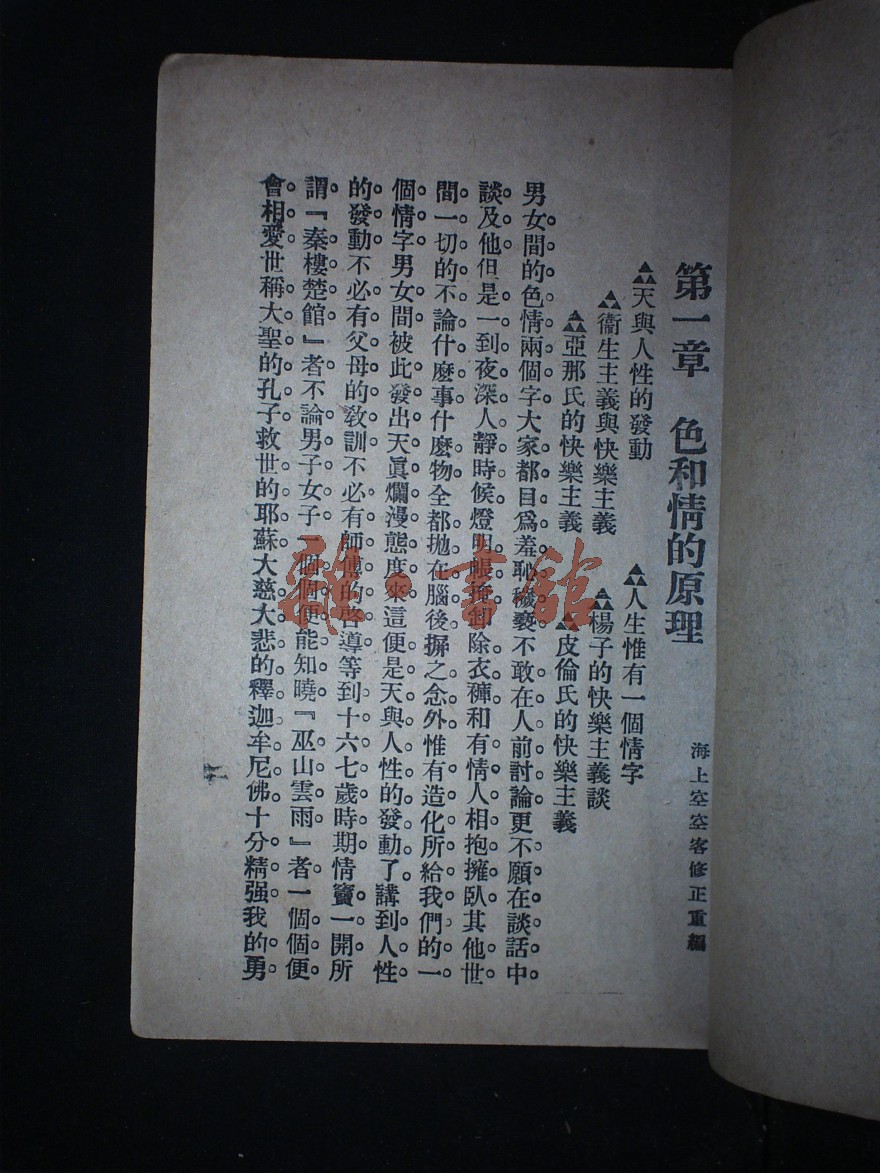 第一章　色和情的原理
海上空空客修正重編
▲▲天與人性的發動　▲▲人生惟有一個情字
▲衞生主義與快樂主義　▲▲楊子的快樂主義談
▲▲亞那氏的快樂主義　▲▲皮倫氏的快樂主義
男女間的色情兩個字大家都目爲羞恥穢褻不敢在人前討論更不願在談話中
談及他但是一到夜深人靜時候燈明眼掩卸除衣褲和有情人相抱擁臥其他世
間一切的不論什麽事什麽物全都拋在腦後摒之念外惟有造化所給我們的一
個情字男女間被此發出天眞爛漫態度來這便是天與人性的發動了講到人性
的發動不必有父母的敎訓不必有師傅的啓導等到十六七歲時期情竇一開所
謂『秦樓楚館』者不論男子女子一個個便能知曉『巫山雲雨』者一個個便
會相愛世稱大聖的孔子救世的耶蘇大慈大悲的釋迦牟尼佛十分精强我的勇
雅書館